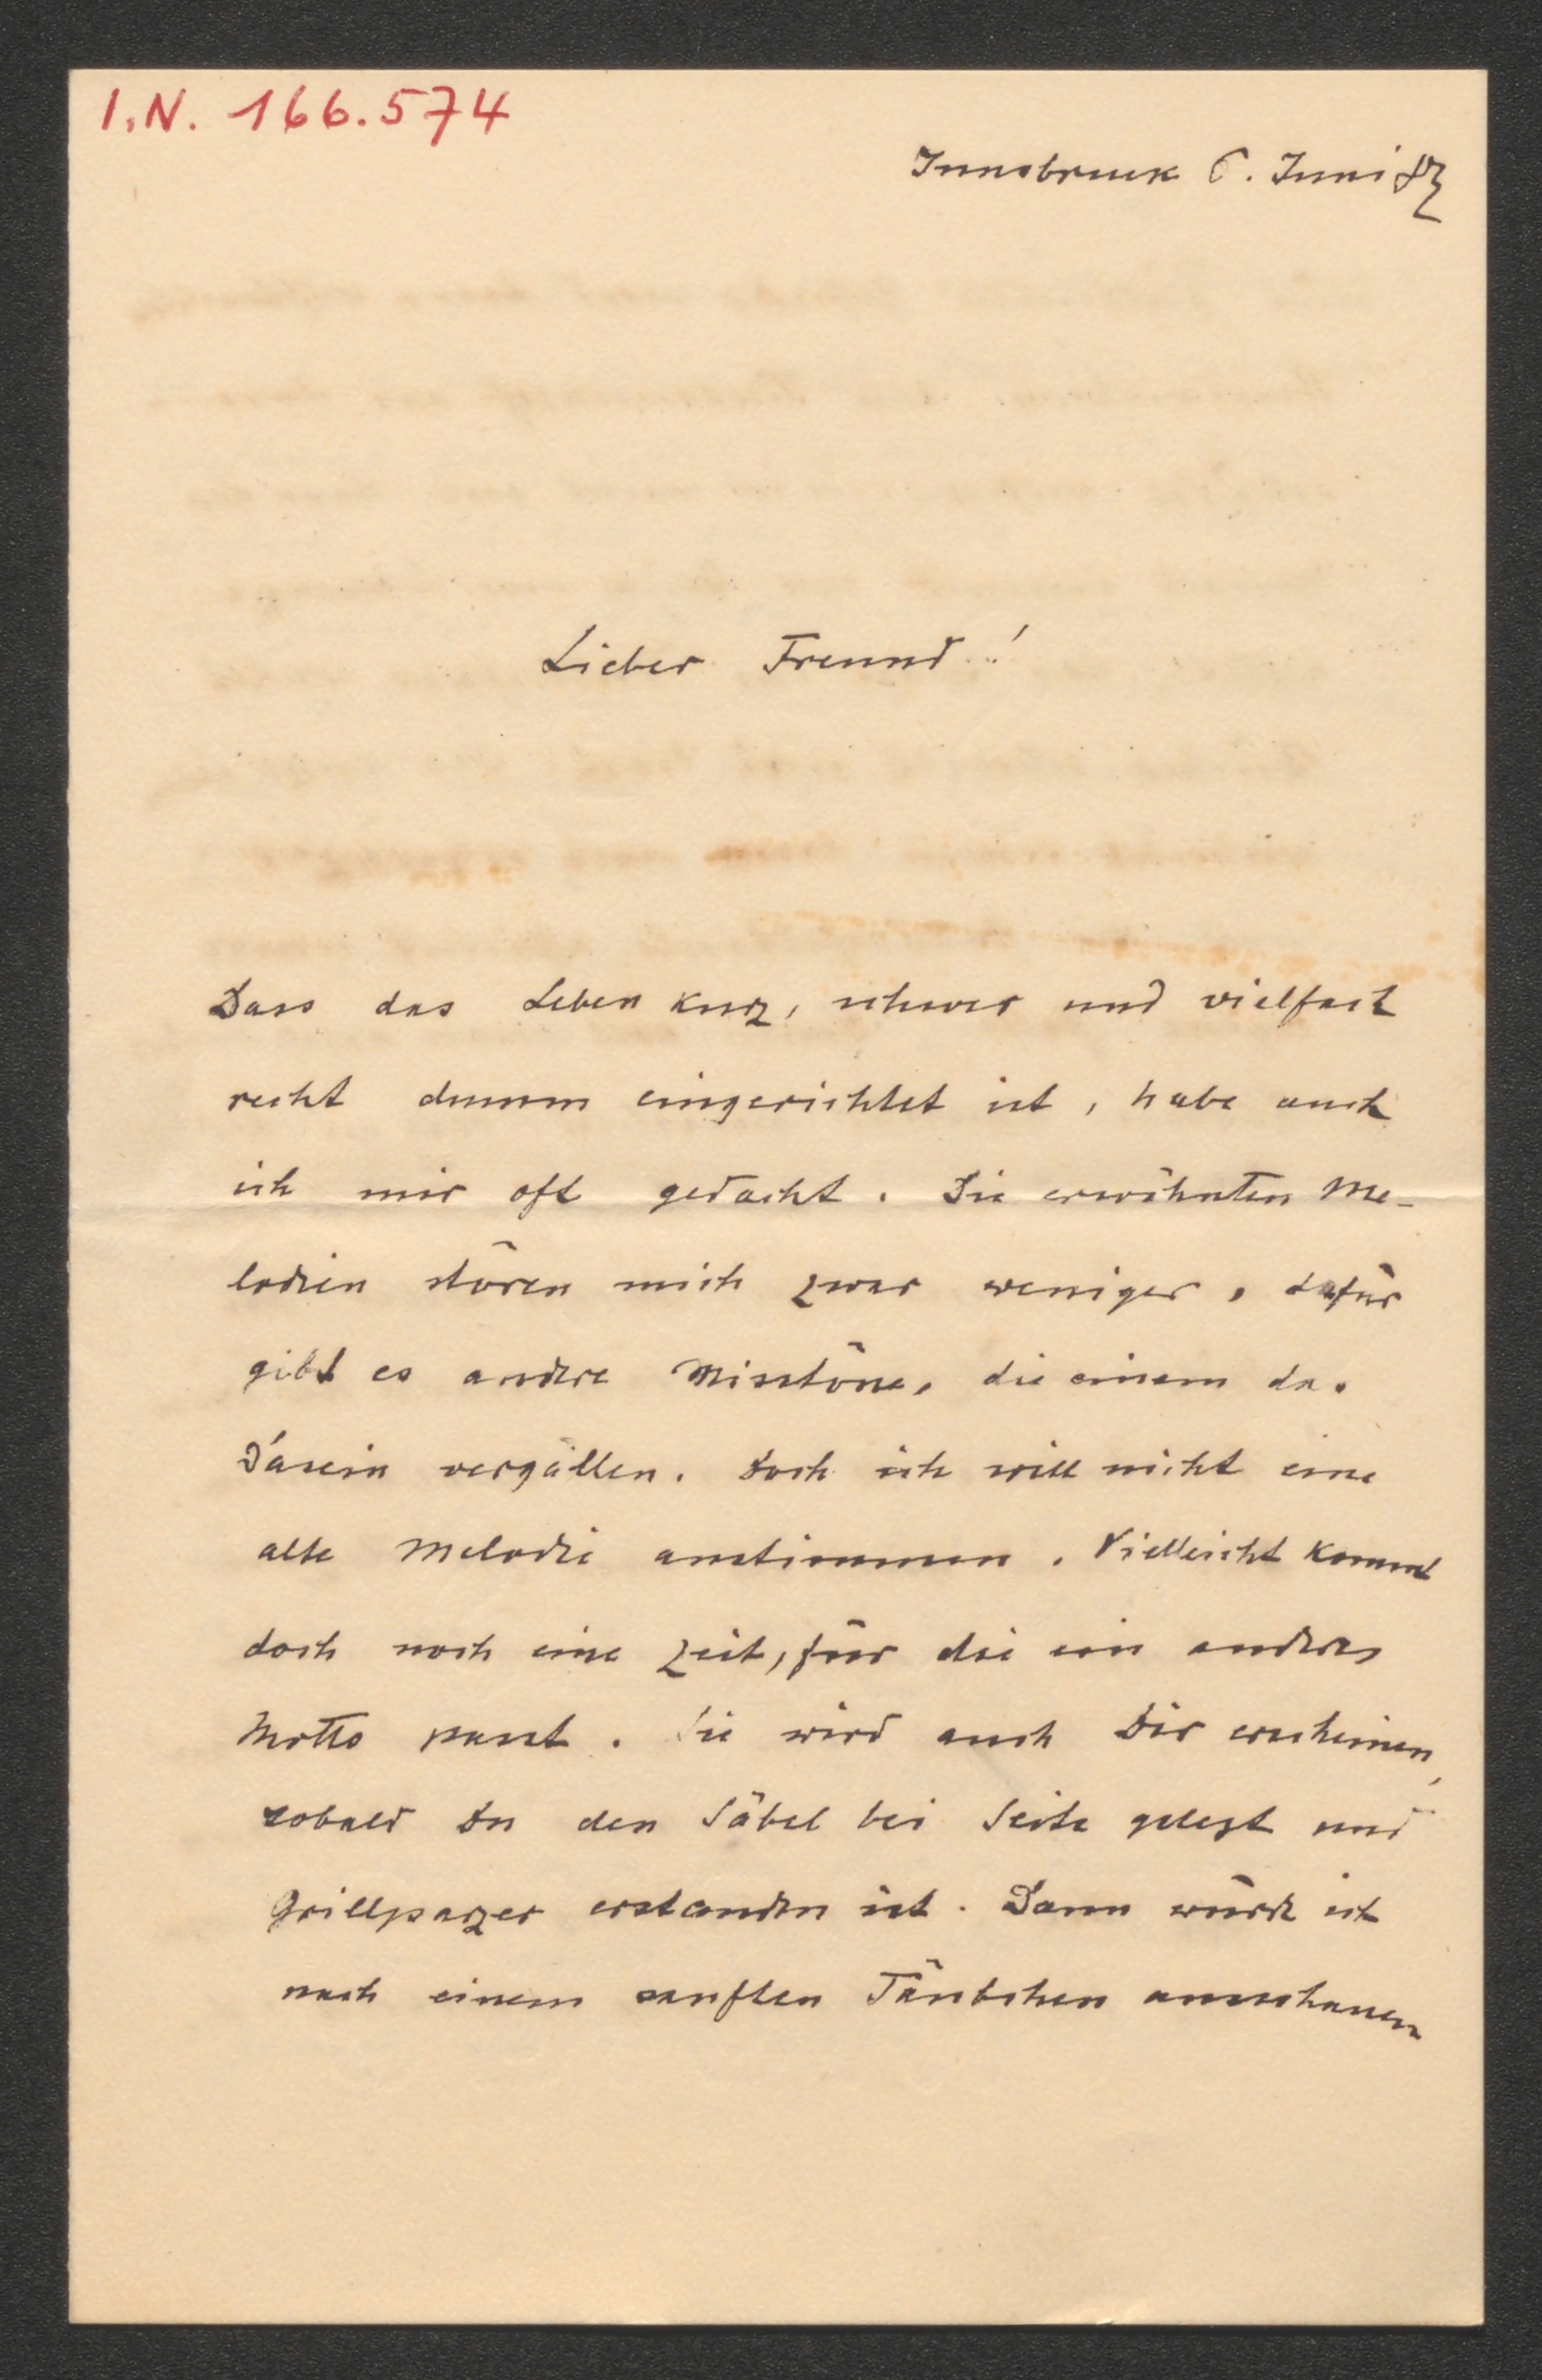 I.N. 166.574
Innsbruck 6. Juni
Lieber Freund!
Dass das Leben kurz, schwer und vielfach
recht dumm eingerichtet ist, habe auch
ich mir oft gedacht. Die erwähnten Me-
lodien stören mich zwar weniger, dafür
gibt es andere Misstöne, die einem das
Dasein vergällen. Doch ich will nicht eine
alte Melodie anstimmen. Vielleicht kommt
doch noch eine Zeit, für die ein anderes
Motto passt. Sie wird auch Dir erscheinen,
sobald Du den Säbel bei Seite gelegt und
Grillparzer erstanden ist. Dann würde ich
nach einem sanften Täubchen ausschauen